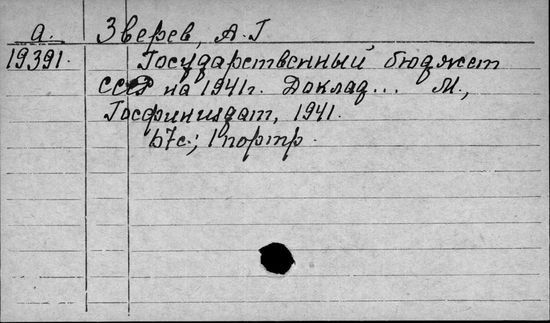 а. Зверев, А.Г
19391. Государственный бюджет
СССР на 1941г. Доклад... М.,
Госфиниздат, 1941.
67с.; 1 портр.